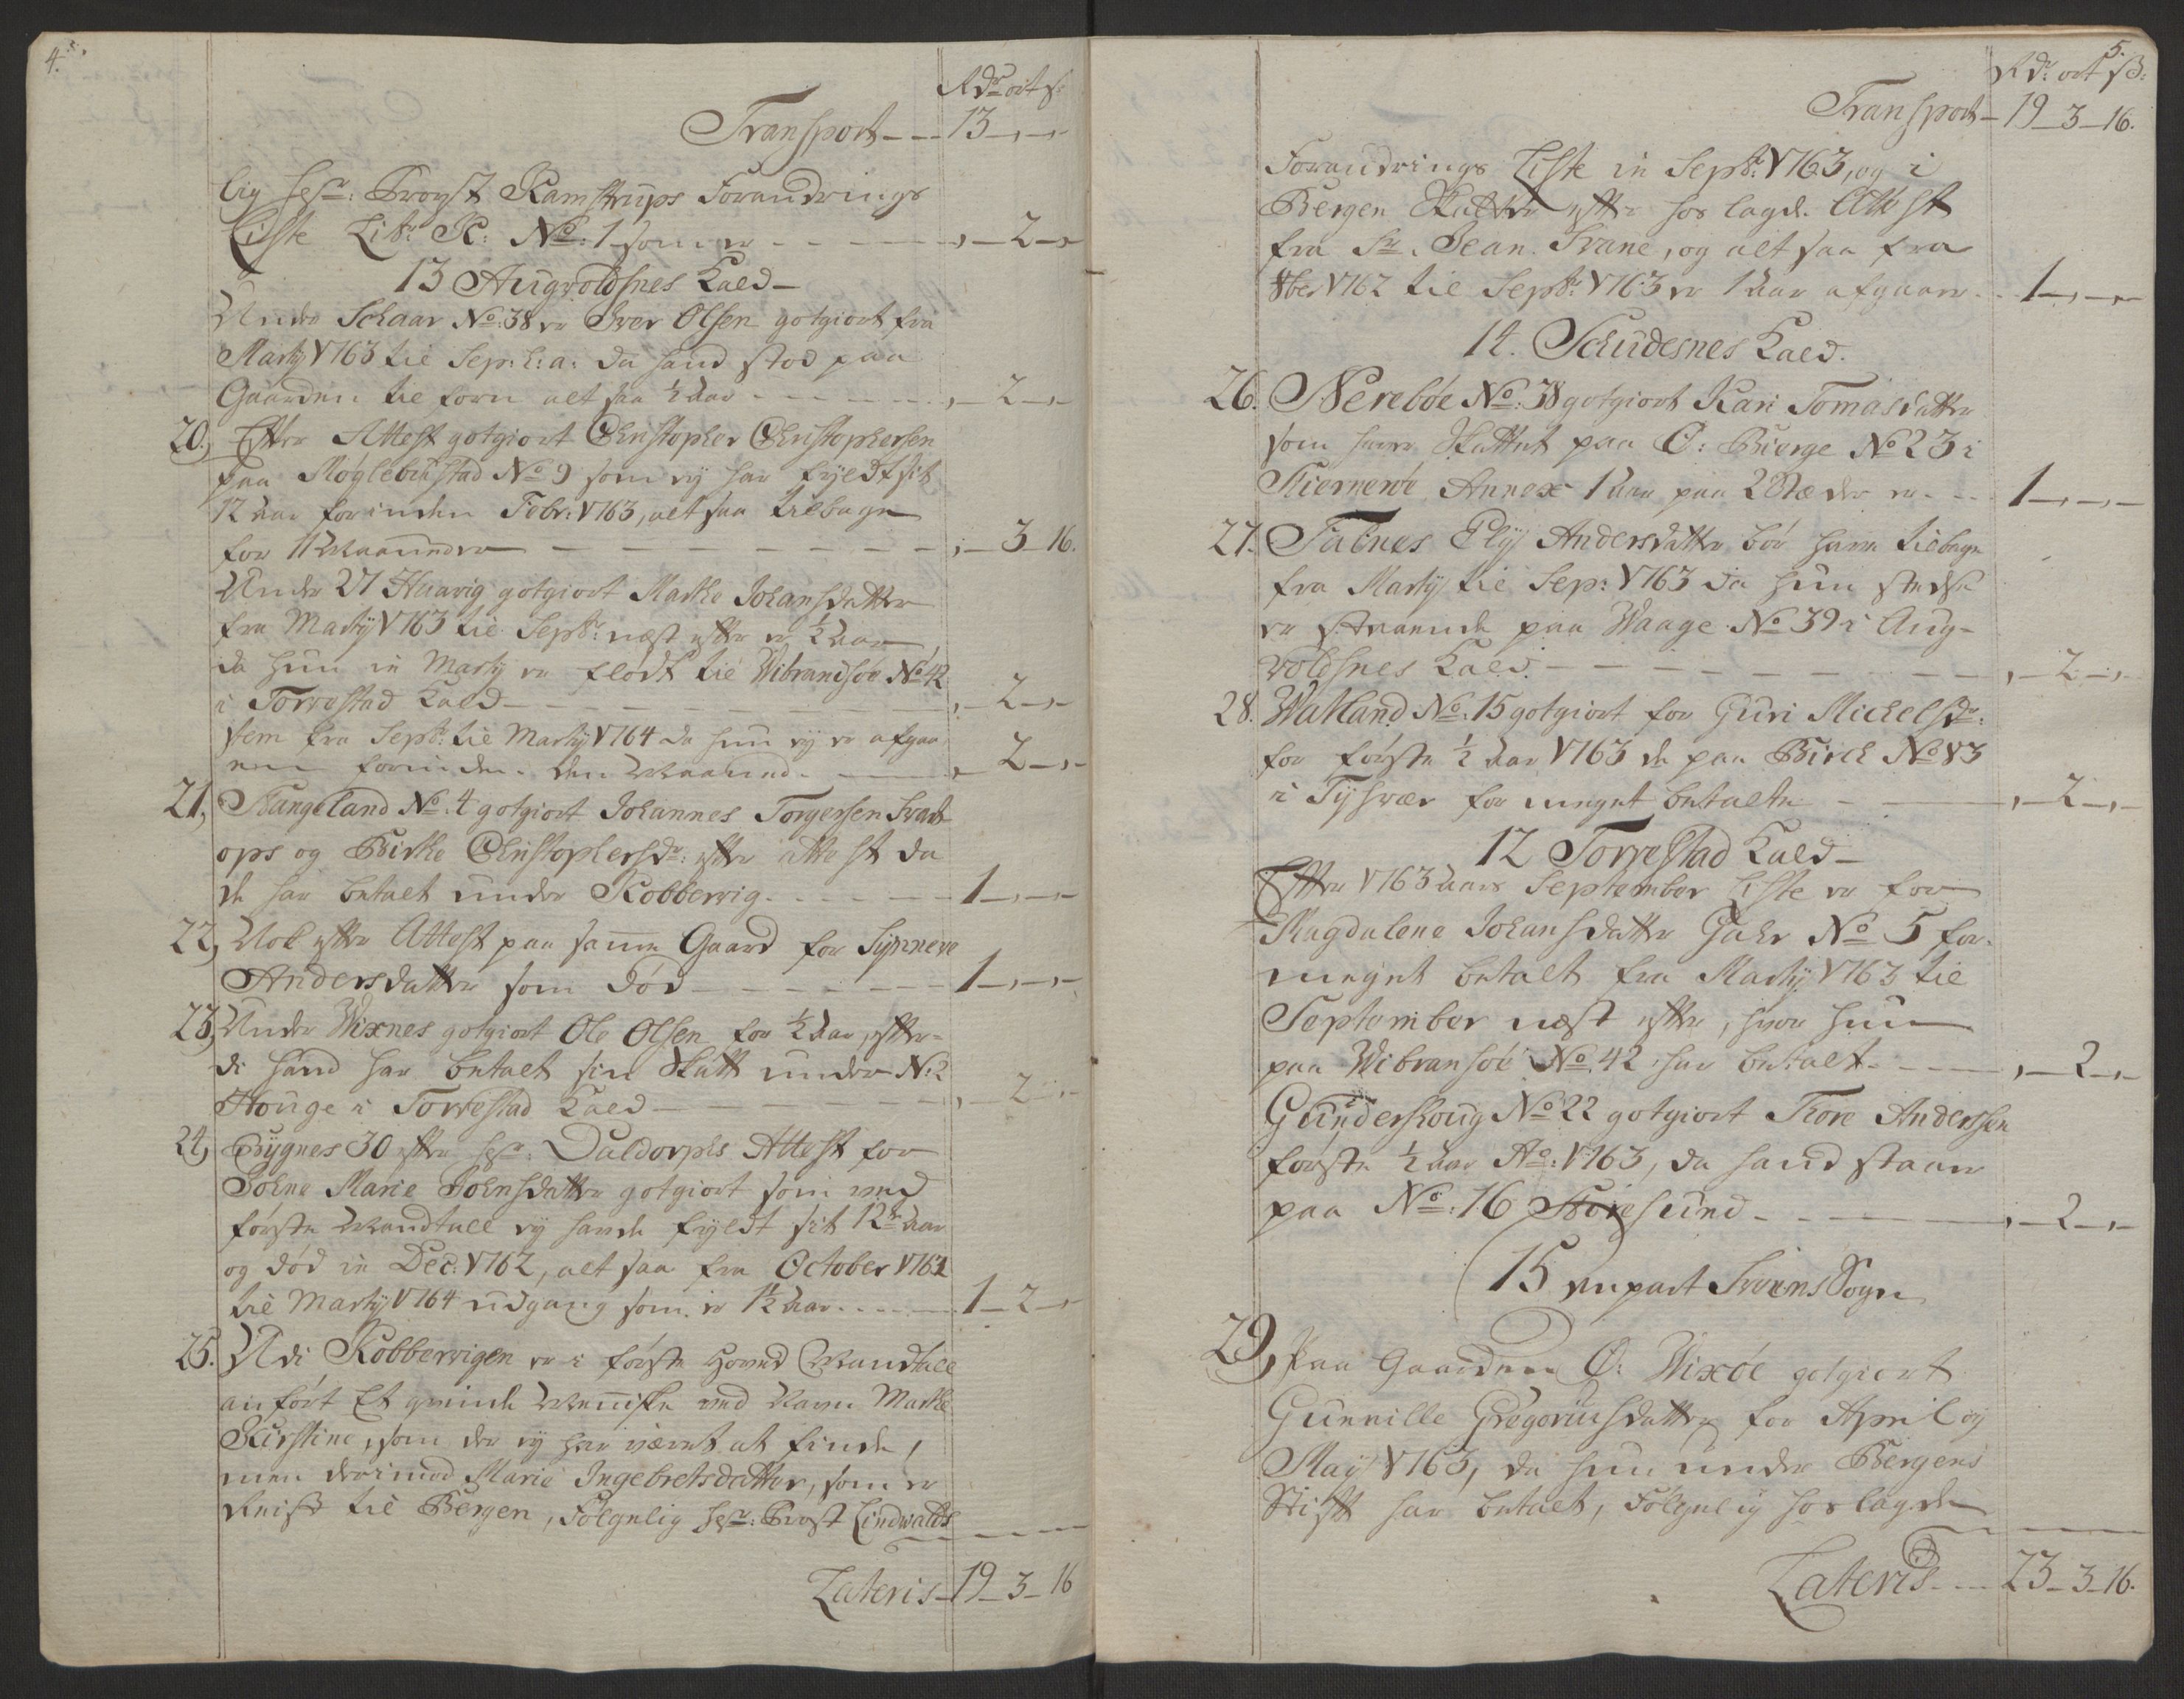 4.
Rdr ort s:
Transport - - 13 - „ - „
lig Hr: Provst Kamstrups Forandrings
Liste Litr. K: No: 1 som er - - - „ - 2 - „
13 Augvoldsnes Kald -
Under Schaar No: 38 er Iver Olsen gotgiort fra
Martÿ 1763 til Sep: h: a: da hand stod paa
Gaarden tilforn alt saa ½ Aar - - - - „ - 2 - „
20, Efter Attest gotgiort Christopher Christophersen
paa Møglebustad No 9 som ej har fyldt sit
12 Aar forinden Febr: 1763, alt saa tilbage
for 11 Maaneder - - - - - - - - - „ - 3 - 16.
Under 27 Huavig gotgiort Marthe Johansdatter
fra Martÿ 1763 til Septbr: næst efter er ½ Aar
da hun in Martÿ er flødt til Wibrandsøe No 42
i Torvestad Kald - - - - - „ - 2 - „
Item fra Septbr: til Martÿ 1764 da hun ej er afgaa-
en forinden den Maaned. - - „ - 2 - „
21, Stangeland No. 4 gotgiort Johannes Torgersen Svart-
ops og Birthe Christophersdr: efter attest da
de har betalt under Kobbervig. - - - - 1 - „ - „
22, Nok efter Attest paa samme Gaard for Synneve
Andersdatter som død - - - - - - 1 - „ - „
23, Under Wixnes gotgiort Ole Olsen for ½ Aar, efter-
di hand har betalt sin Skatt under No: 2
Houge i Torvestad Kald - - - - - - „ - 2 - „
24, Bygnes 30 efter Hr: Daldorphs Attest for
Johne Marie Johnsdatter gotgiort som ved
første Mandtall ej havde fyldt sit 12te Aar
og død in Dec: 1762, alt saa fra October 1762
til Martÿ 1764 udgang som er 1½ Aar - - - - 1 - 2 - „
25. Udi Kobbervigen er i første Hoved Mandtall
anført Et qvinde Menniske ved Navn Marthe
Kirstine, som der ej har været at finde,
men derimod Marie Ingebretsdatter, som er
Reist til Bergen, Følgelig Hr: Provst Lindwalds
Lateris - 19 - 3 - 16
5.
Rdr: ort s:
Transport - 19 - 3 - 16.
Forandrings Liste in Septbr: 1763, og i
Bergen Skatter efter hoslagde Attest
fra Sr. Jean Svane, og alt saa fra
8ber 1762 til Septbr: 1763 er 1 Aar afgaaen. - 1 - „ - „
14. Schudesnes Kald.
26. Nerebøe No: 38 gotgiort Kari Tomasdatter
som have Skattet paa Ø: Bierge No 23 i
Stiernerøe Annex 1 Aar paa 2 Stæder er - - 1 - „ - „
27. Falnes Ely Andersdatter bør have tilbage
fra Martÿ til Sep: 1763 da hun stedse
er staaende paa Waage No 39 i Aug-
voldsnes Kald. - - - - - - - „ - 2 - „
28. Watland No: 15 gotgiort for Guri Michelsdr:
for første ½ Aar 1763 de paa Birck No 83
i Tÿsvær for meget betalte - - - „ - 2 - „
12 Torvestad Kald -
Efter 1763 Aars September Liste er for
Magdalene Johansdatter Hahr No 5 for-
meget betalt fra Martÿ 1763 til
September næst efter, hvor hun
paa Wibransøe No. 42 har betalt - - - „ - 2 - „
Gunderskoug No 22 gotgiort Tore Andersen
første ½ Aar Ao: 1763, da hand staaer
paa No: 16 Storesund - - - - „ - 2 - „
15 enpart Sveens Sogn
29, Paa Gaarden Ø: Wixøe gotgiort
Gunnille Gregoriusdatter for April og
Maÿ 1763, da hun under Bergens
Stift har betalt, Følgelig hoslagde
Lateris - - 23 - 3 - 16.